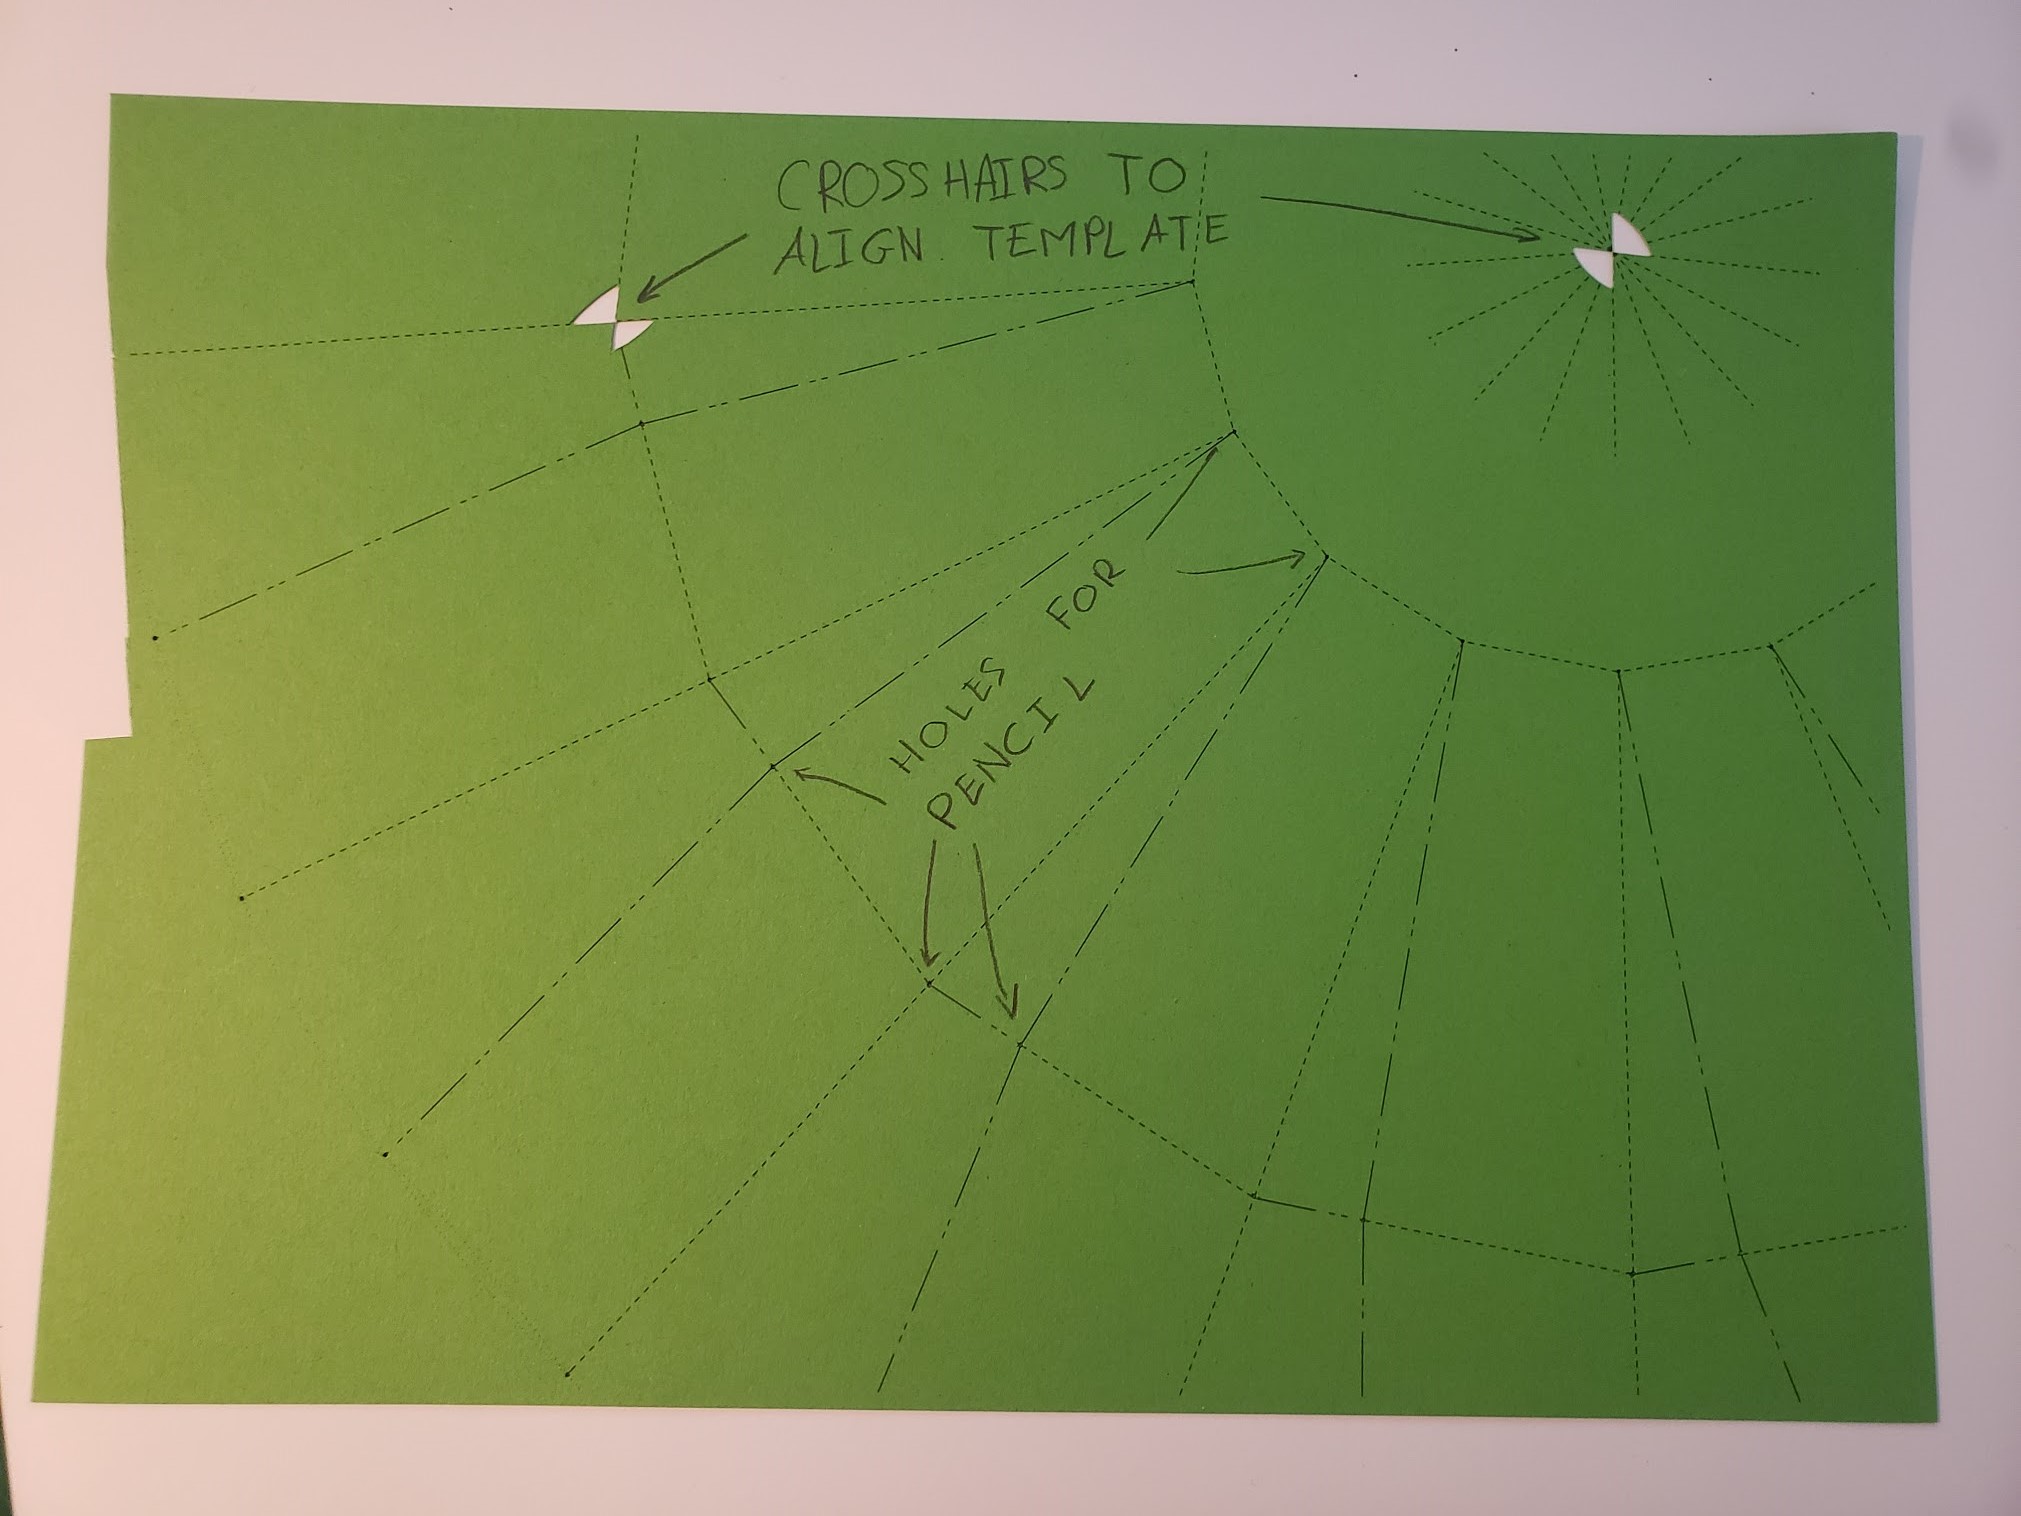 CROSSHAIRS TO
ALIGN TEMPLATE
HOLES FOR
PENCIL